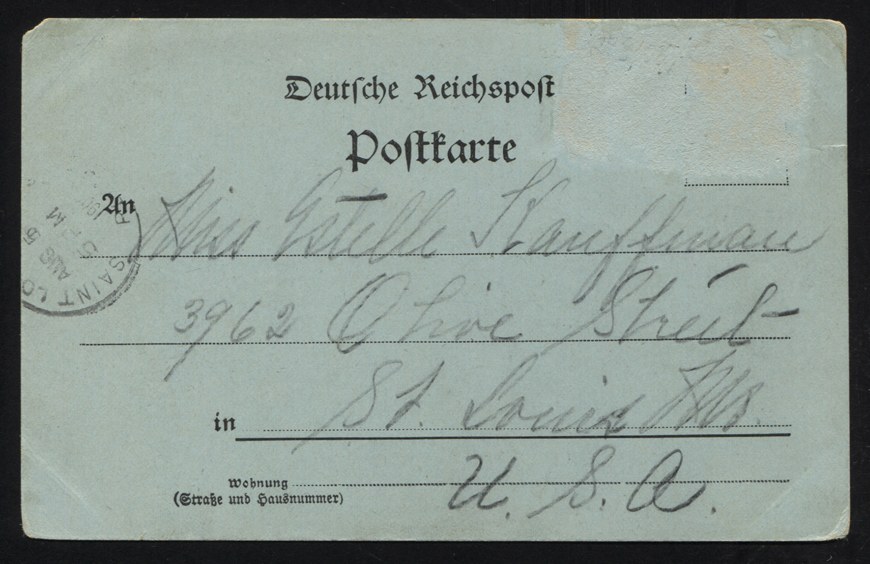 Deutsche Reichspost
Postkarte
An Miss Estelle Kauffman
3962 Olive Street
in St. Louis Mo.
Wohnung U. S. A.
(Straße und Hausnummer)
SAINT LO
AUG 5
5 PM